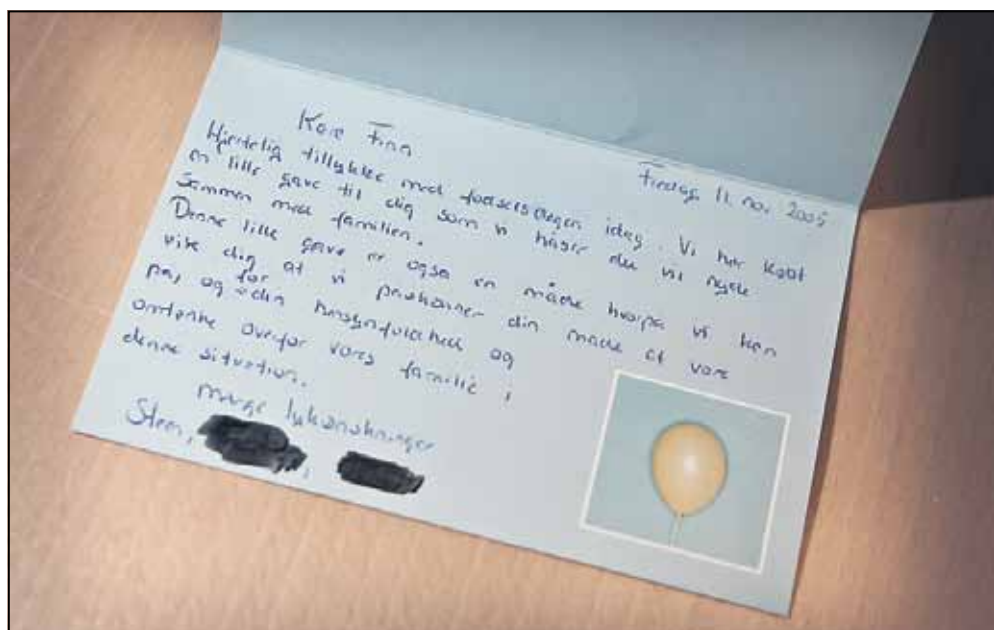 Fredag 11. nov 2005
Kære Finn
Hjertelig tillykke med fødselsdagen idag. Vi har købt
en lille gave til dig som vi håber du vil nyde
sammen med familien.
Denne lille gave er også en måde hvorpå vi kan
vise dig at vi påskønner din måde at være
på, og for din hensynfuldhed og
omtanke overfor vores familie i
denne situation.
Mange lykønskninger
Steen,